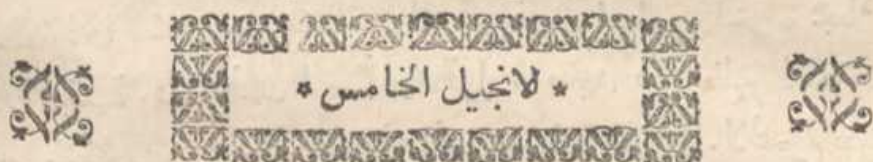 * الانجيل الخامس *